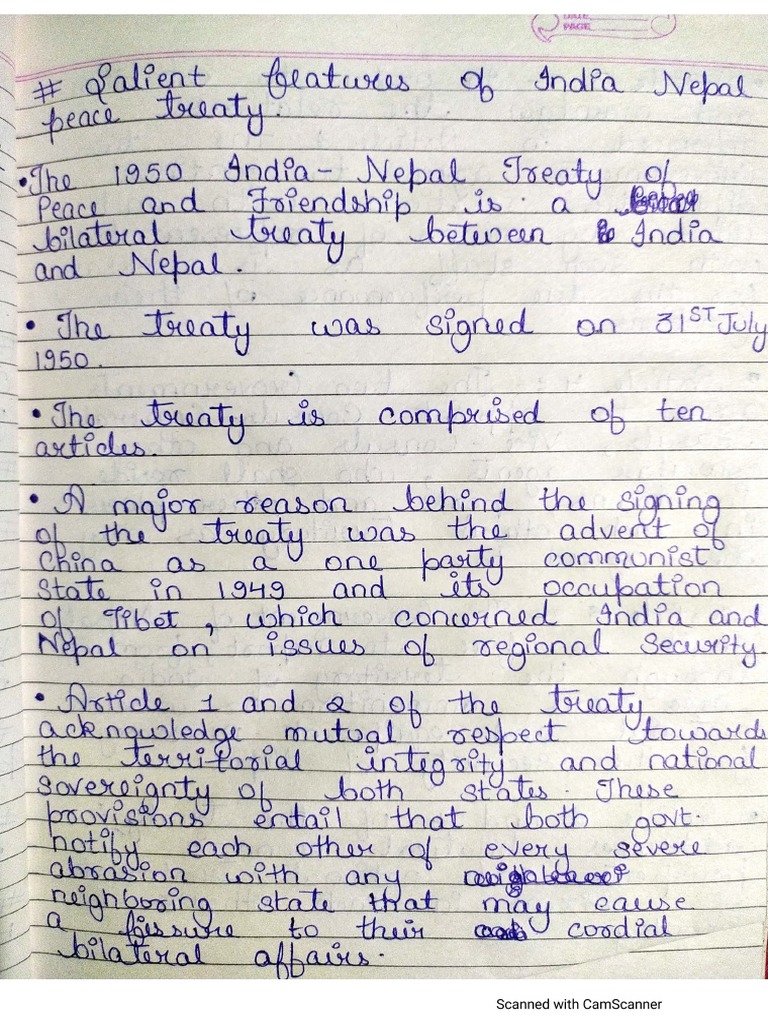 DATE
PAGE
# Salient features of India Nepal
peace treaty.
• The 1950 India - Nepal Treaty of
Peace and Friendship is a
bilateral treaty between India
and Nepal.
• The treaty was signed on 31ST July
1950.
• The treaty is comprised of ten
articles.
• A major reason behind the signing
of the treaty was the advent of
China as a one party communist
State in 1949 and its occupation
of Tibet, which concerned India and
Nepal on issues of regional Security.
• Article 1 and 2 of the treaty
acknowledge mutual respect towards
the territorial integrity and national
sovereignty of both states. These
provisions entail that both govt.
notify each other of every severe
abrasion with any
neighboring state that may cause
a fissure to their cordial
bilateral affairs.
Scanned with CamScanner